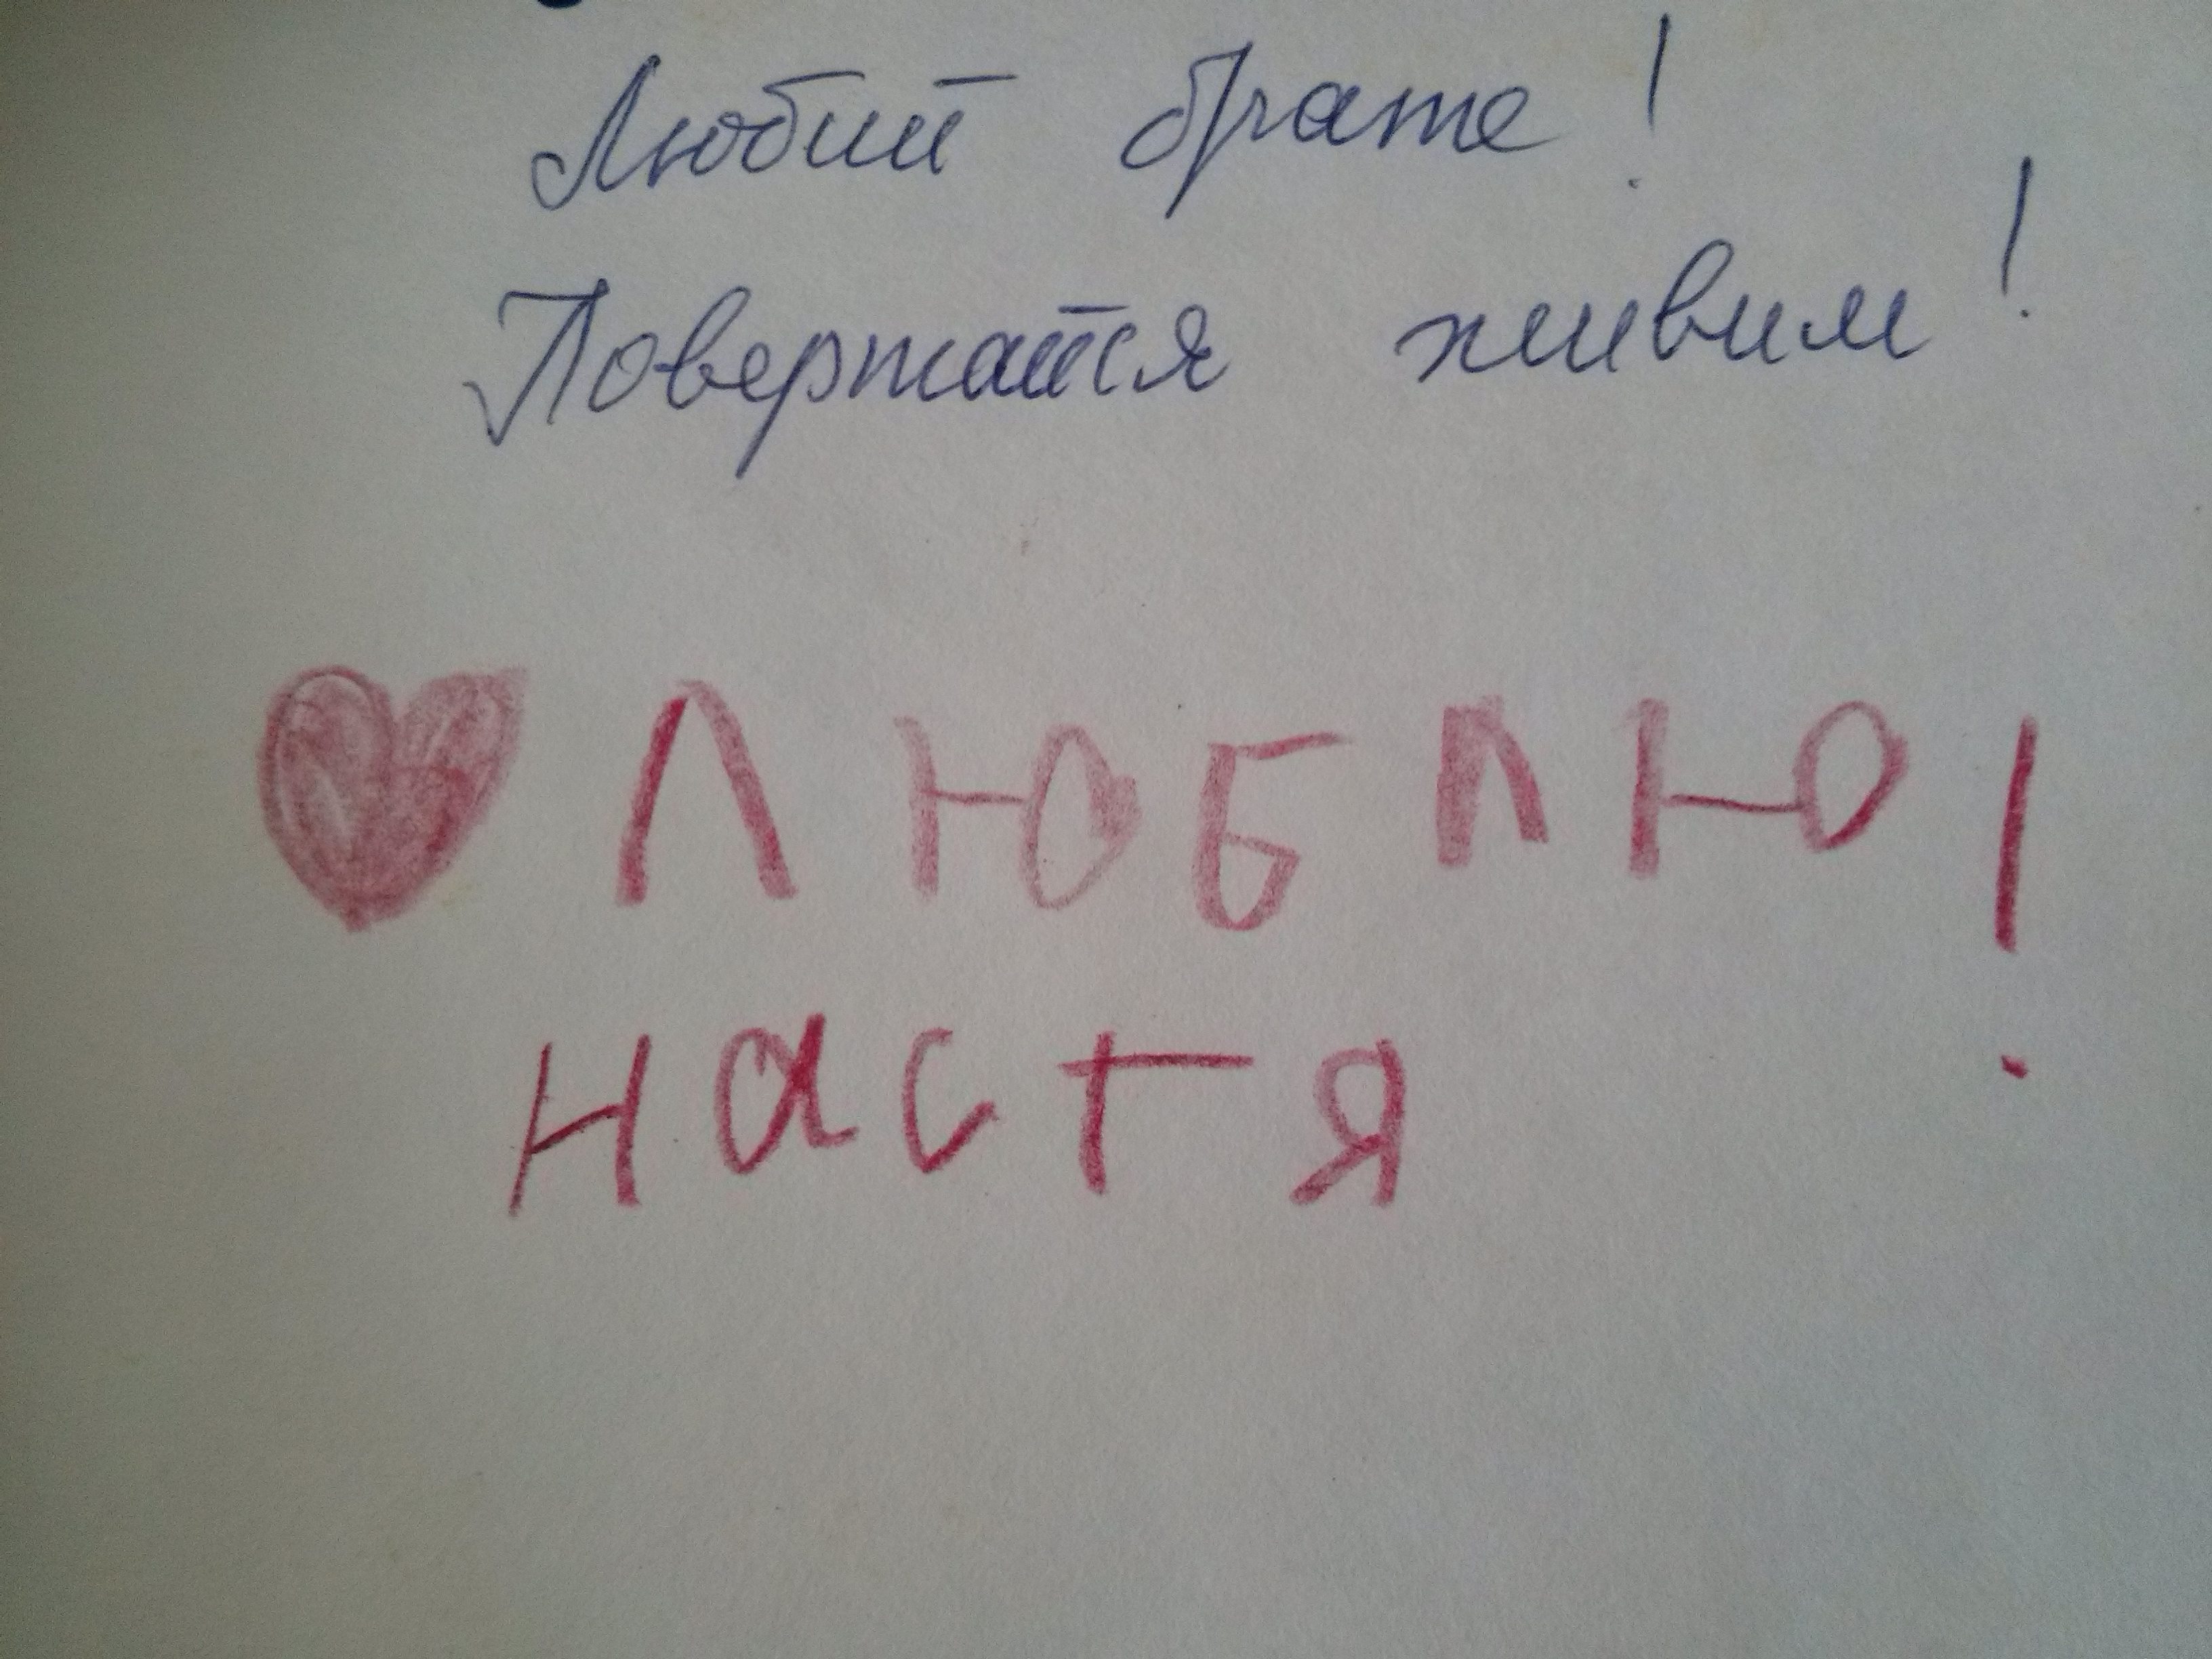 Любий брате!
Повертайся живим!
ЛЮБЛЮ!
Настя